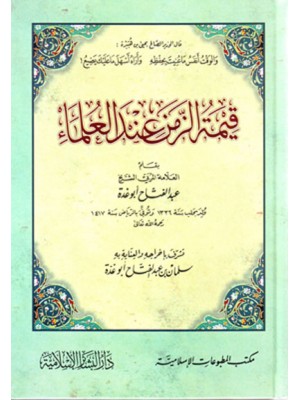 قال الوزير الصالح يحيى بن هبيرة:
والوقت أنفس ما عنيت بحفظه وأراه أسهل ما عليك يضيع!
قيمة الزمن عند العلماء
بقلم
العلامة المربي الشيخ
عبد الفتاح أبو غدة
ولد بحلب سنة ١٣٣٦ وتوفي بالرياض سنة ١٤١٧
رحمه الله تعالى
تشرف بإخراجه والعناية به
سلمان بن عبد الفتاح أبو غدة
مكتب المطبوعات الإسلامية
دار البشائر الإسلامية